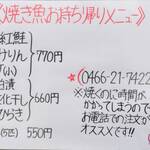 〈焼き魚お持ち帰りメニュー〉
紅鮭
770円
(小)
白漬
660円
550円
☎(0466-21-7422
※焼くのに時間が
かかってしまうので
お電話での注文が
オススメです!!